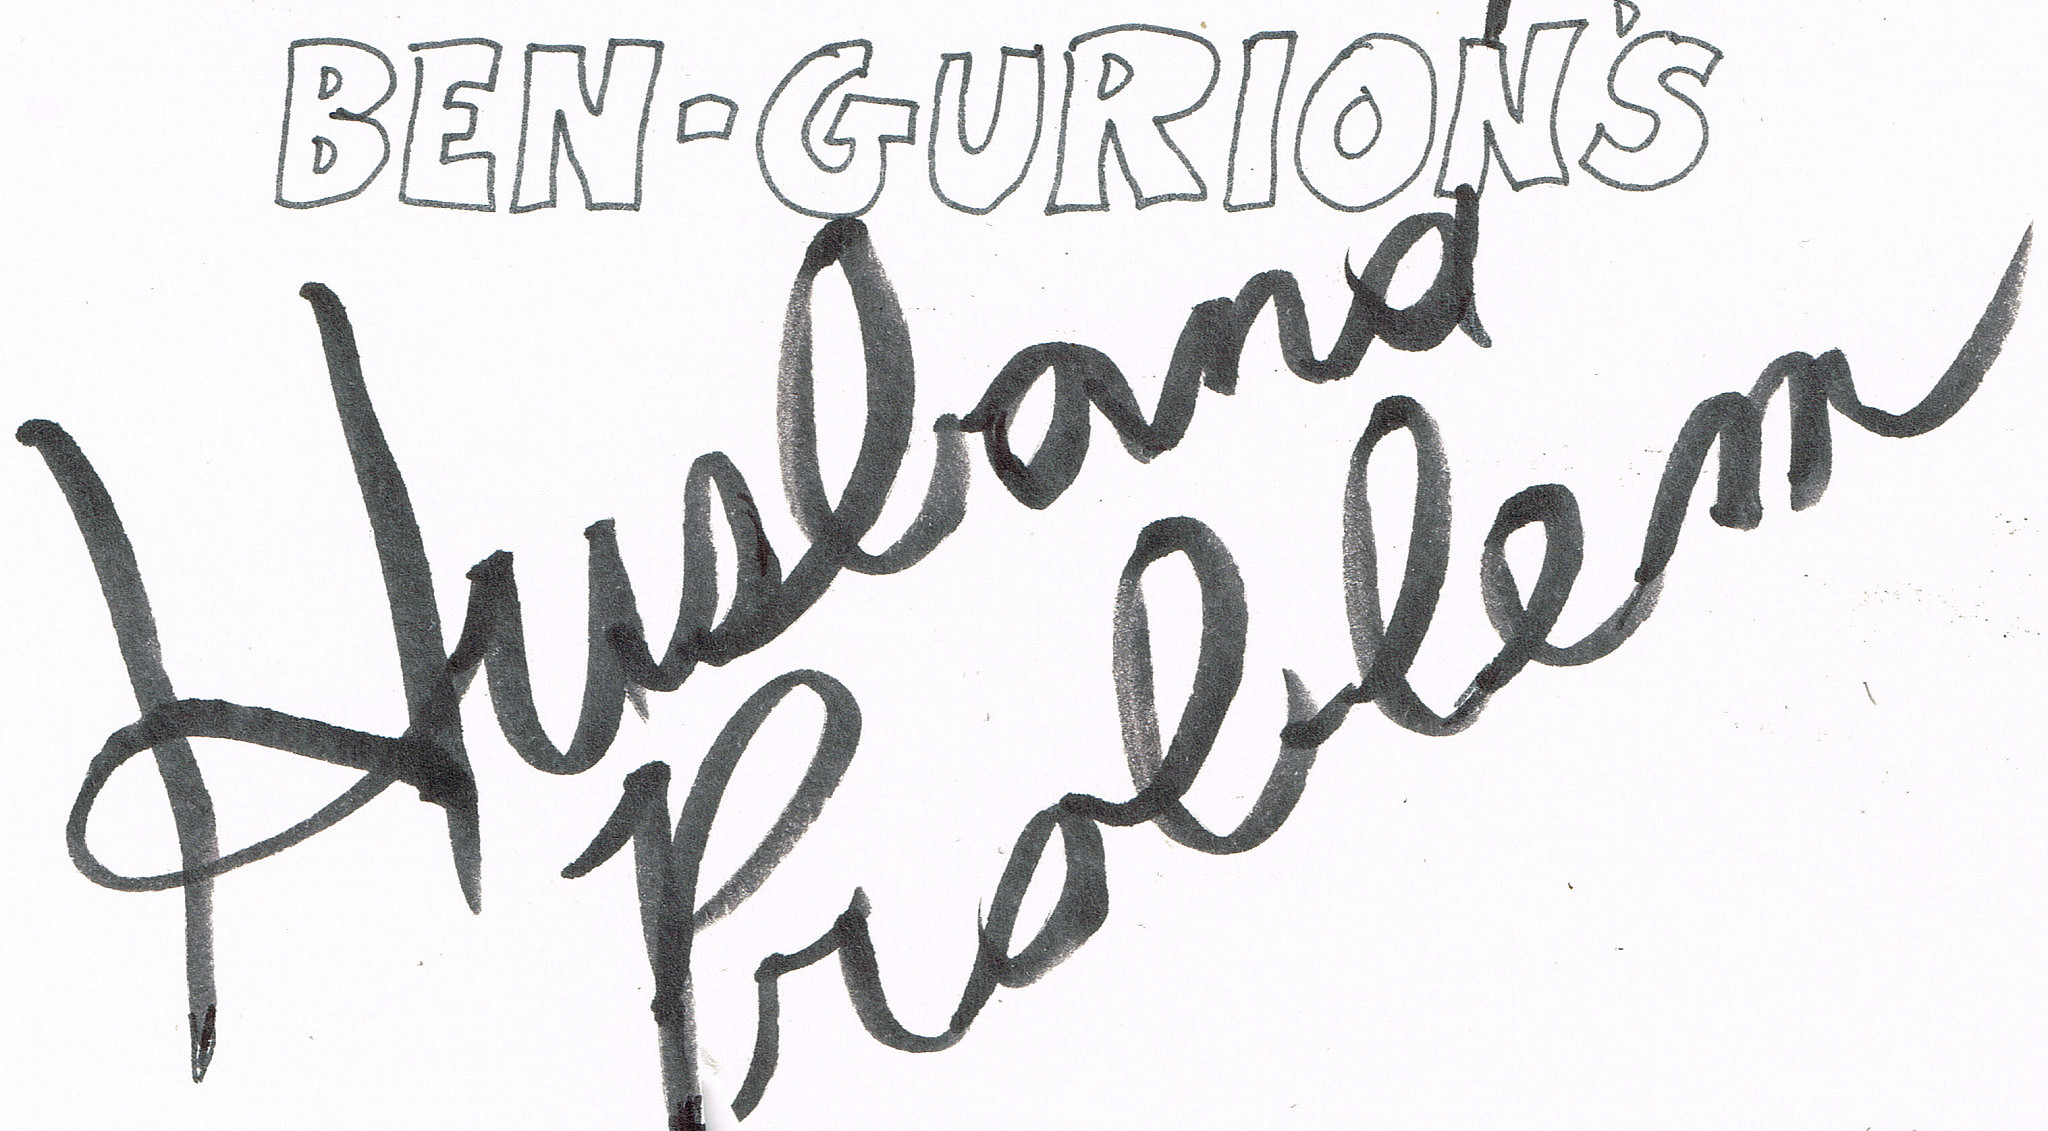 BEN-GURION'S
Husband
Problem